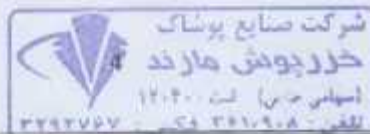 شرکت صنایع پوشاک
خزر پوش مازند
(سهامی خاص) ثبت ۱۲۰۴۰۰
تلفن : ۳۶۱۰۹۰۸ فکس : ۳۲۹۲۷۶۷